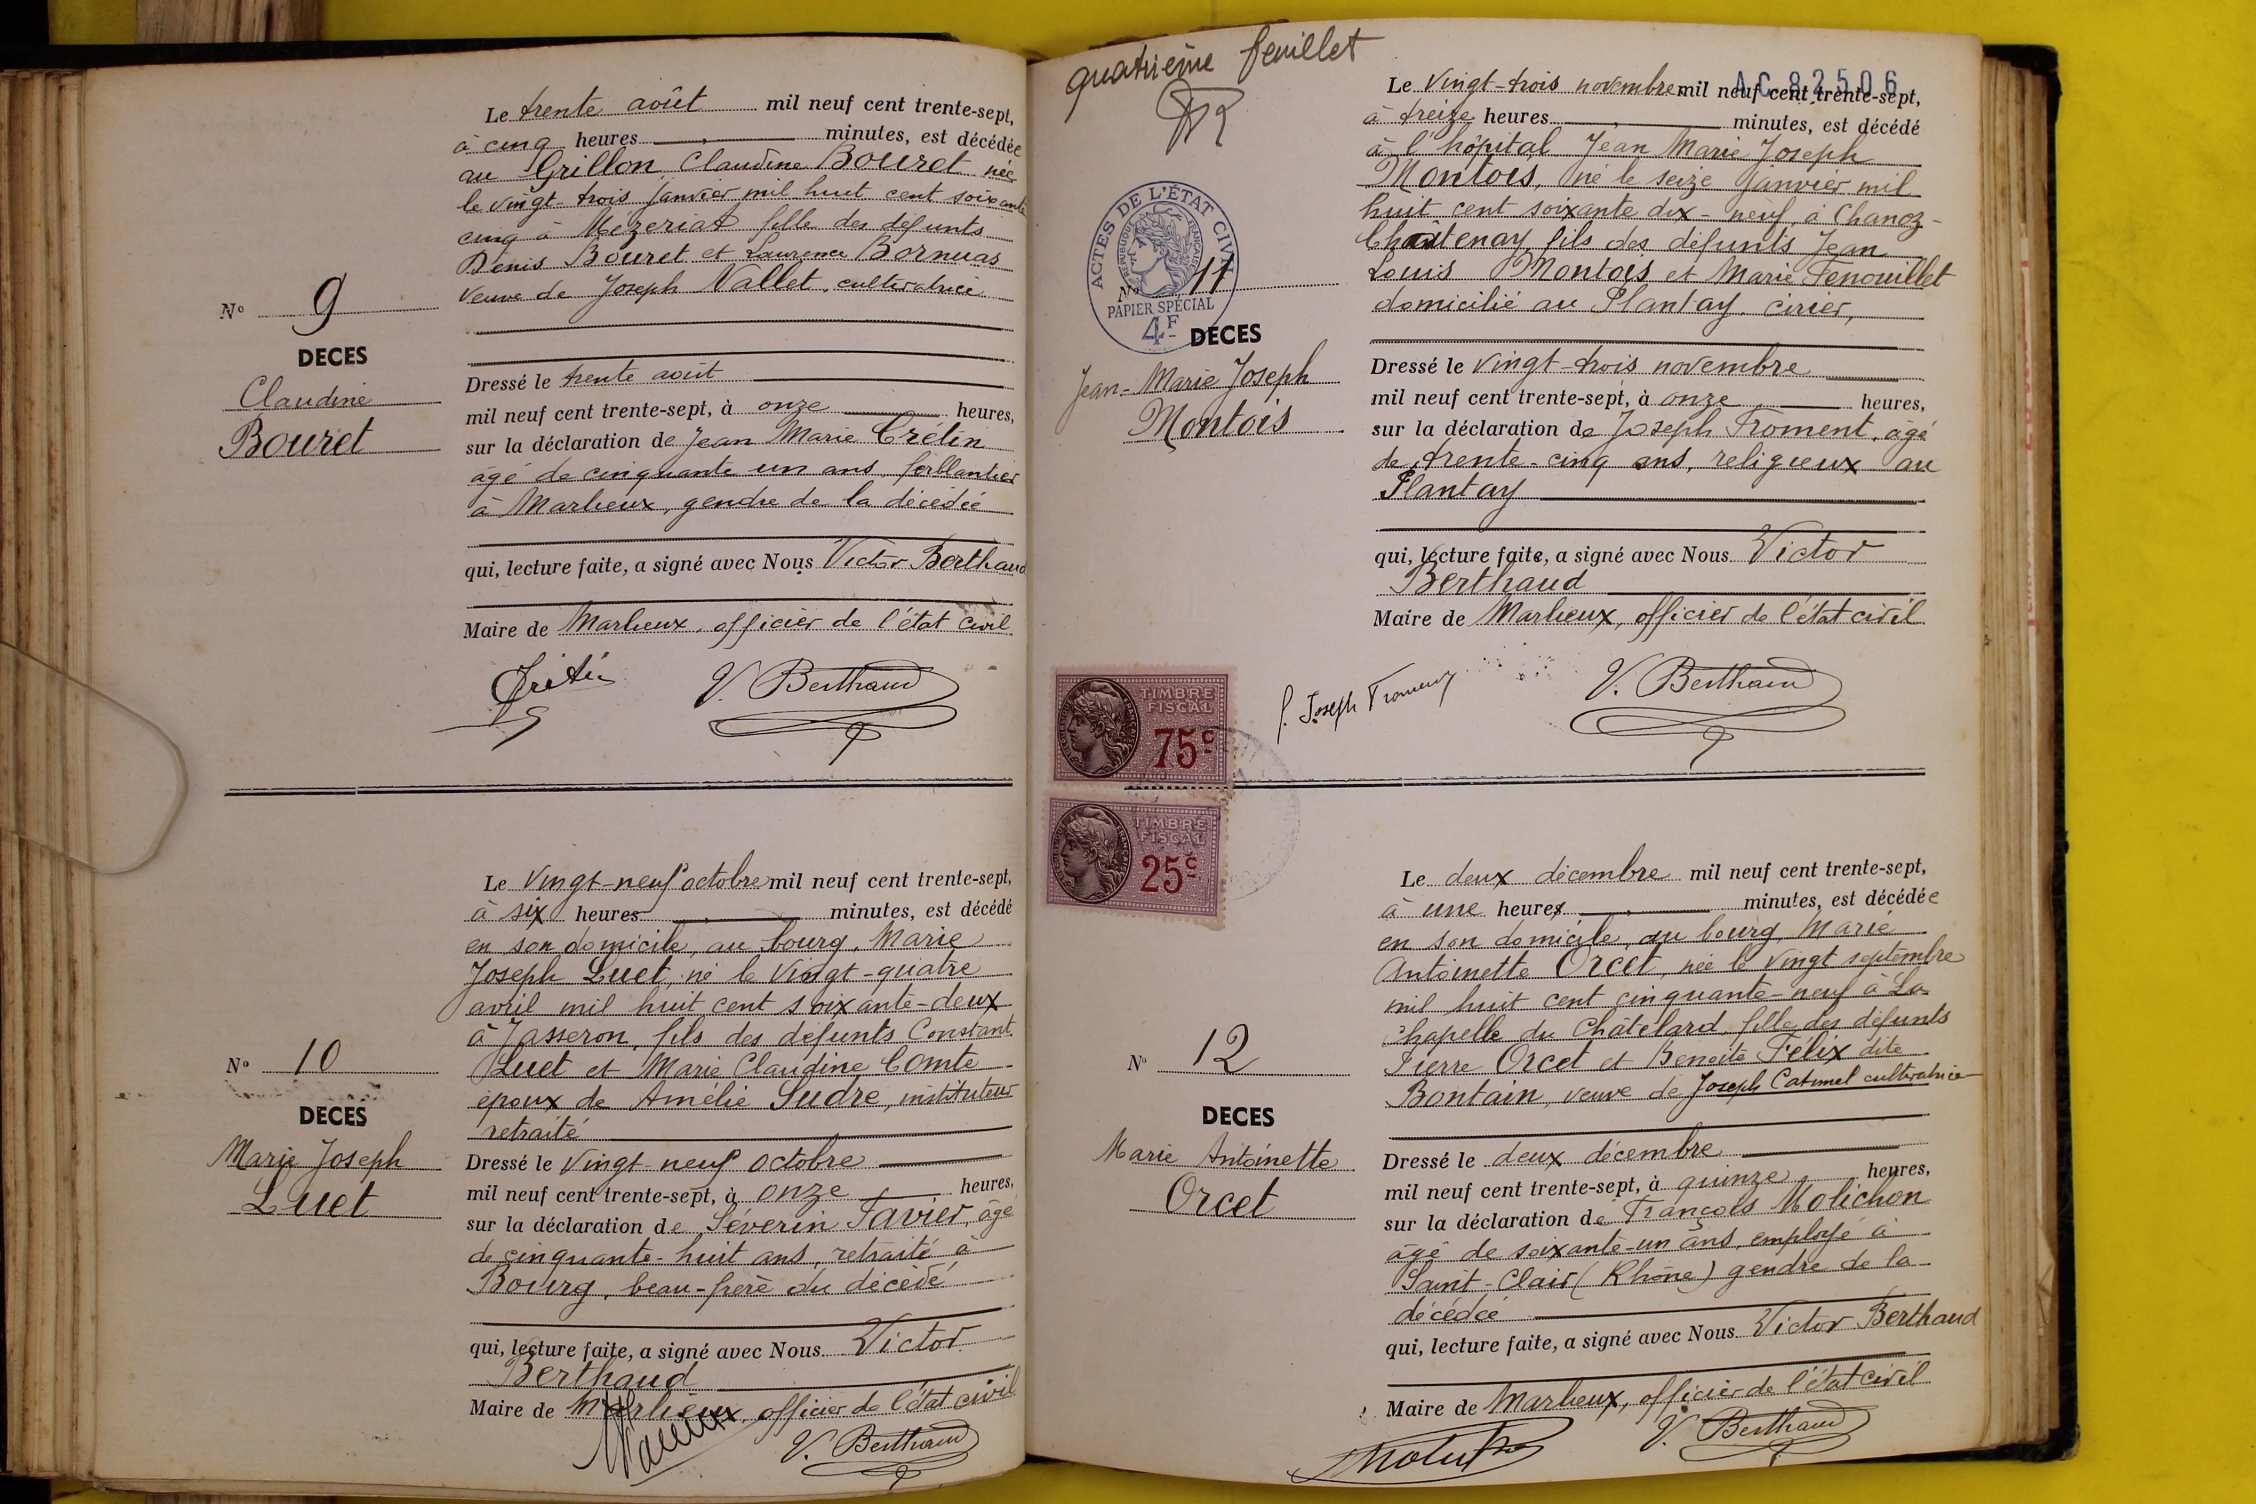 Le trente août mil neuf cent trente-sept,
à cinq heures minutes, est décédée
au Grillon Claudine Bouret née
le vingt-trois janvier mil huit cent soixante
cinq à Mézeriat fille des défunts
Denis Bouret et Laurence Bornuas
veuve de Joseph Vallet, cultivatrice
N° 9
DECES
Claudine
Bouret
Dressé le trente août
mil neuf cent trente-sept, à onze heures,
sur la déclaration de Jean Marie Crétin
âgé de cinquante un ans, ferblantier
à Marlieux, gendre de la décédée
qui, lecture faite, a signé avec Nous Victor Berthaud
Maire de Marlieux, officier de l'état civil
V. Berthaud
Le vingt-neuf octobre mil neuf cent trente-sept,
à six heures minutes, est décédé
en son domicile, au bourg, Marie
Joseph Luet, né le vingt-quatre
avril mil huit cent soixante-deux
à Jasseron, fils des défunts Constant
Luet et Marie Claudine Comte
époux de Amélie Sudre, instituteur
retraité
N° 10
DECES
Marie Joseph
Luet
Dressé le vingt-neuf octobre
mil neuf cent trente-sept, à onze heures,
sur la déclaration de Séverin Favier, âgé
de cinquante-huit ans, retraité à
Bourg, beau-frère du décédé
qui, lecture faite, a signé avec Nous Victor
Berthaud
Maire de Marlieux, officier de l'état civil
V. Berthaud
quatrième feuillet
AC 82506
Le vingt-trois novembre mil neuf cent trente-sept,
à treize heures minutes, est décédé
à l'hôpital Jean Marie Joseph
Montois, né le seize janvier mil
huit cent soixante dix-neuf, à Chanoz-
Châtenay, fils des défunts Jean
Louis Montois et Marie Fenouillet
domicilié au Plantay, cirier,
ACTES DE L'ÉTAT CIVIL
RÉPUBLIQUE FRANÇAISE
PAPIER SPÉCIAL
4F
N° 11
DECES
Jean-Marie Joseph
Montois
Dressé le vingt-trois novembre
mil neuf cent trente-sept, à onze heures,
sur la déclaration de Joseph Froment, âgé
de trente-cinq ans, religieux au
Plantay
qui, lecture faite, a signé avec Nous Victor
Berthaud
Maire de Marlieux, officier de l'état civil
f. Joseph Froment
V. Berthaud
TIMBRE
FISCAL
75c
TIMBRE
FISCAL
25c
Le deux décembre mil neuf cent trente-sept,
à une heures minutes, est décédée
en son domicile, au bourg, Marie
Antoinette Orcet, née le vingt septembre
mil huit cent cinquante-neuf à La
Chapelle du Châtelard, fille des défunts
Pierre Orcet et Benoite Félix dite
Bontain, veuve de Joseph Catimel cultivatrice
N° 12
DECES
Marie Antoinette
Orcet
Dressé le deux décembre
mil neuf cent trente-sept, à quinze heures,
sur la déclaration de François Molichon
âgé de soixante-un ans, employé à
Saint-Clair (Rhône) gendre de la
décédée
qui, lecture faite, a signé avec Nous Victor Berthaud
Maire de Marlieux, officier de l'état civil
V. Berthaud